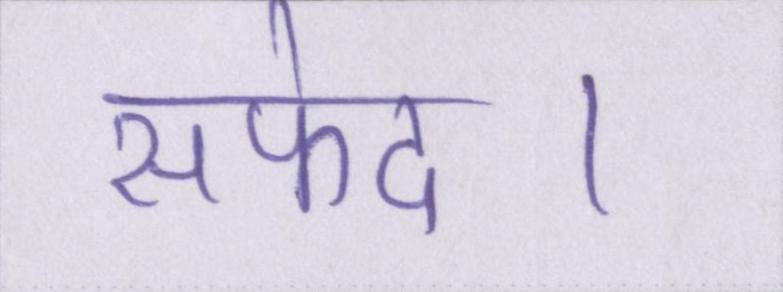 सफेद ।